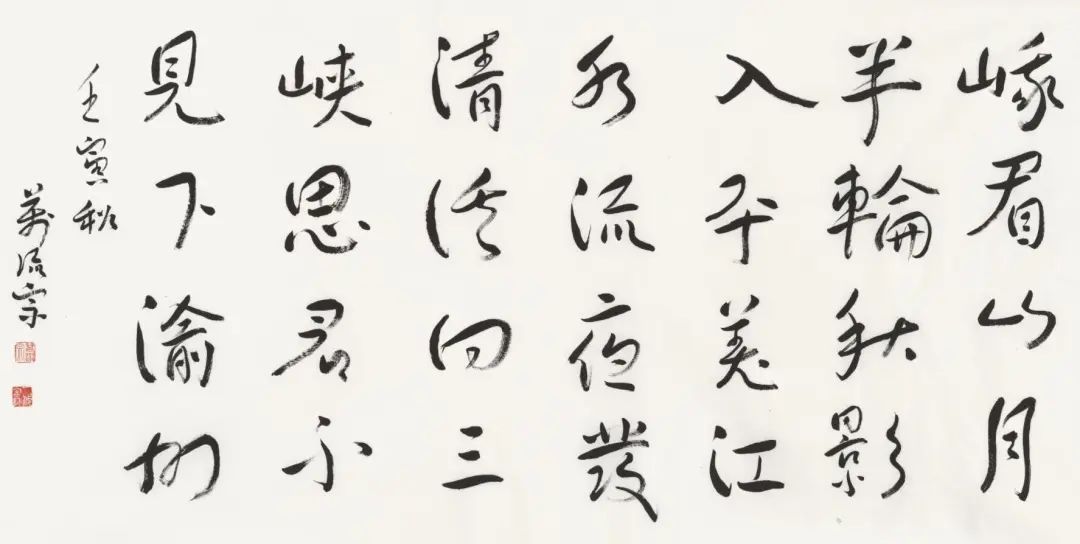 峨眉山月
半輪秋影
入平羌江
水流夜發
清溪向三
峽思君不
見下渝州
壬寅秋
萬流宗